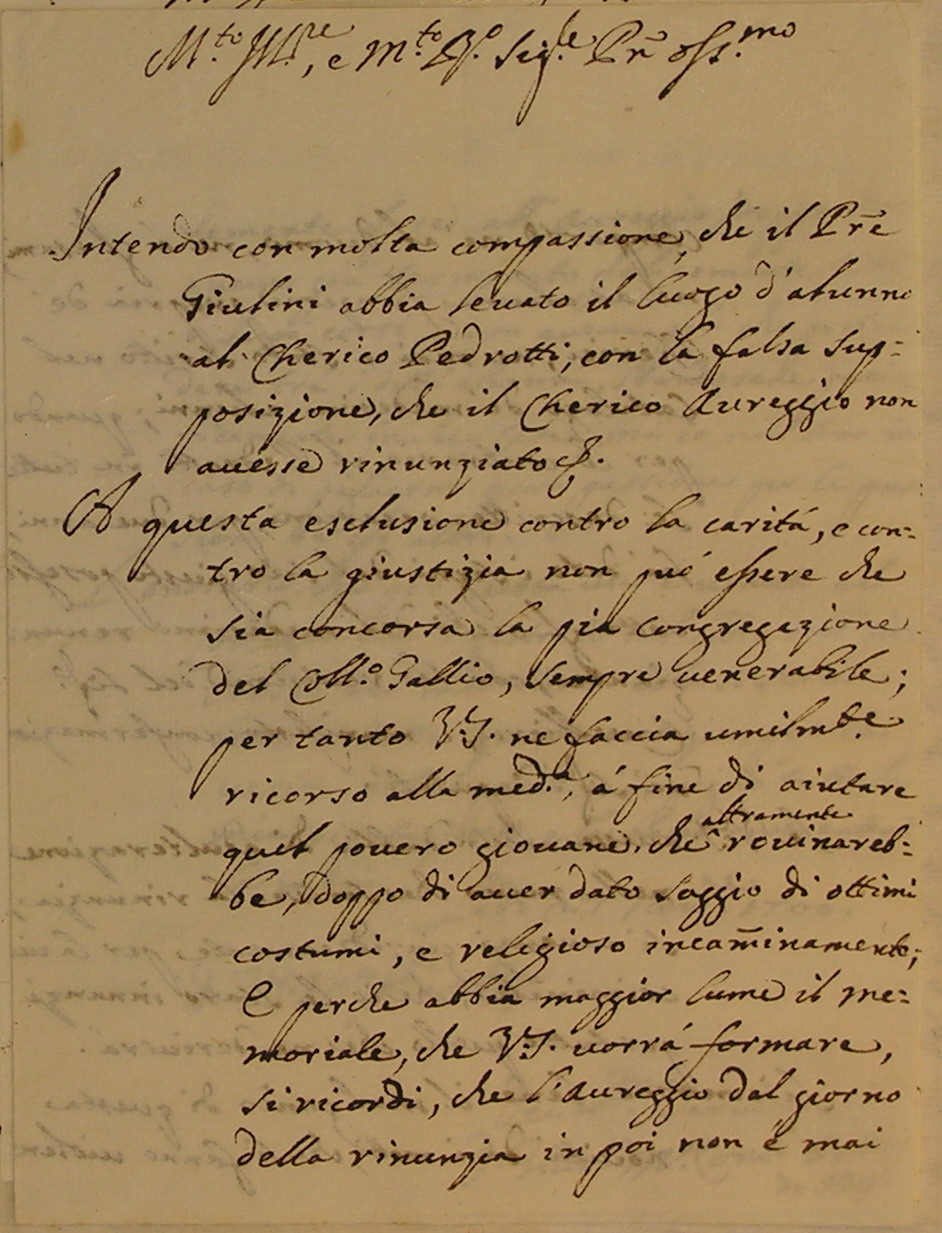 M.to Ill.re, e M.to R.do Sig.re Prõ Oss.mo
Intendo con molta compassione, che il Prẽ
Giulini abbia leuato il luogo d'alunno
al Cherico Pedrotti, con la falsa sup=
posizione, che il Cherico Aureggio non
auesse rinunziato &.
A questa esclusione contro la caritá, e con=
tro la giustizia non puó essere che
sia concorsa la pia Congregazione
del Coll.o Gallio, sempre uenerabile;
per tanto V.S. ne faccia umilmte.
ricorso alla med.a, á fine di aiutare
quel pouero giouane, che altramente rouinareb=
be, doppo di auer dato saggio di ottimi
costumi, e religioso incam̃inamento;
E perche abbia maggior lume il me=
moriale, che V.S. uorrá formare,
si ricordi, che l'Aureggio dal giorno
della rinunzia in poi non é mai